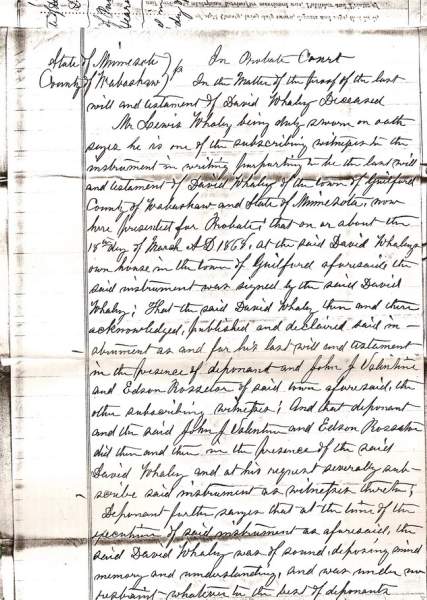 State of Minnesota
County of Wabashaw } ss
In Probate Court
In the Matter of the proof of the last
will and testament of David Whaley Diseased
Mr Lewis Whaley being duly sworn on oath
sayes he is one of the subscribing witnesses to the
instrument in writing purpurting to be the last will
and testament of David Whaley of the town of Guilford
County of Wabashaw and State of Minnesota, now
here presented for Probate; that on or about the
18th day of March A D 1868, at the said David Whaleys
own house in the town of Guilford aforesaid, the
said instrument was signed by the said David
Whaley; That the said David Whaley then and there
acknowledged, published and declaired said in-
strument as and for his last will and testament
in the presence of deponant and John J Valentine
and Edson of said town aforesaid, the
other subscribing witnesses; And that deponant
and the said John J Valentine and Edson
did then and there in the presence of the said
David Whaley and at his request severally sub-
scribe said instrument as witnesses thereto;
Deponant further sayes that at the time of the
execution of said instrument as aforesaid, the
said David Whaley was of sound, deposing mind
memory and understanding, and was under no
restraint whatever to the best of deponants